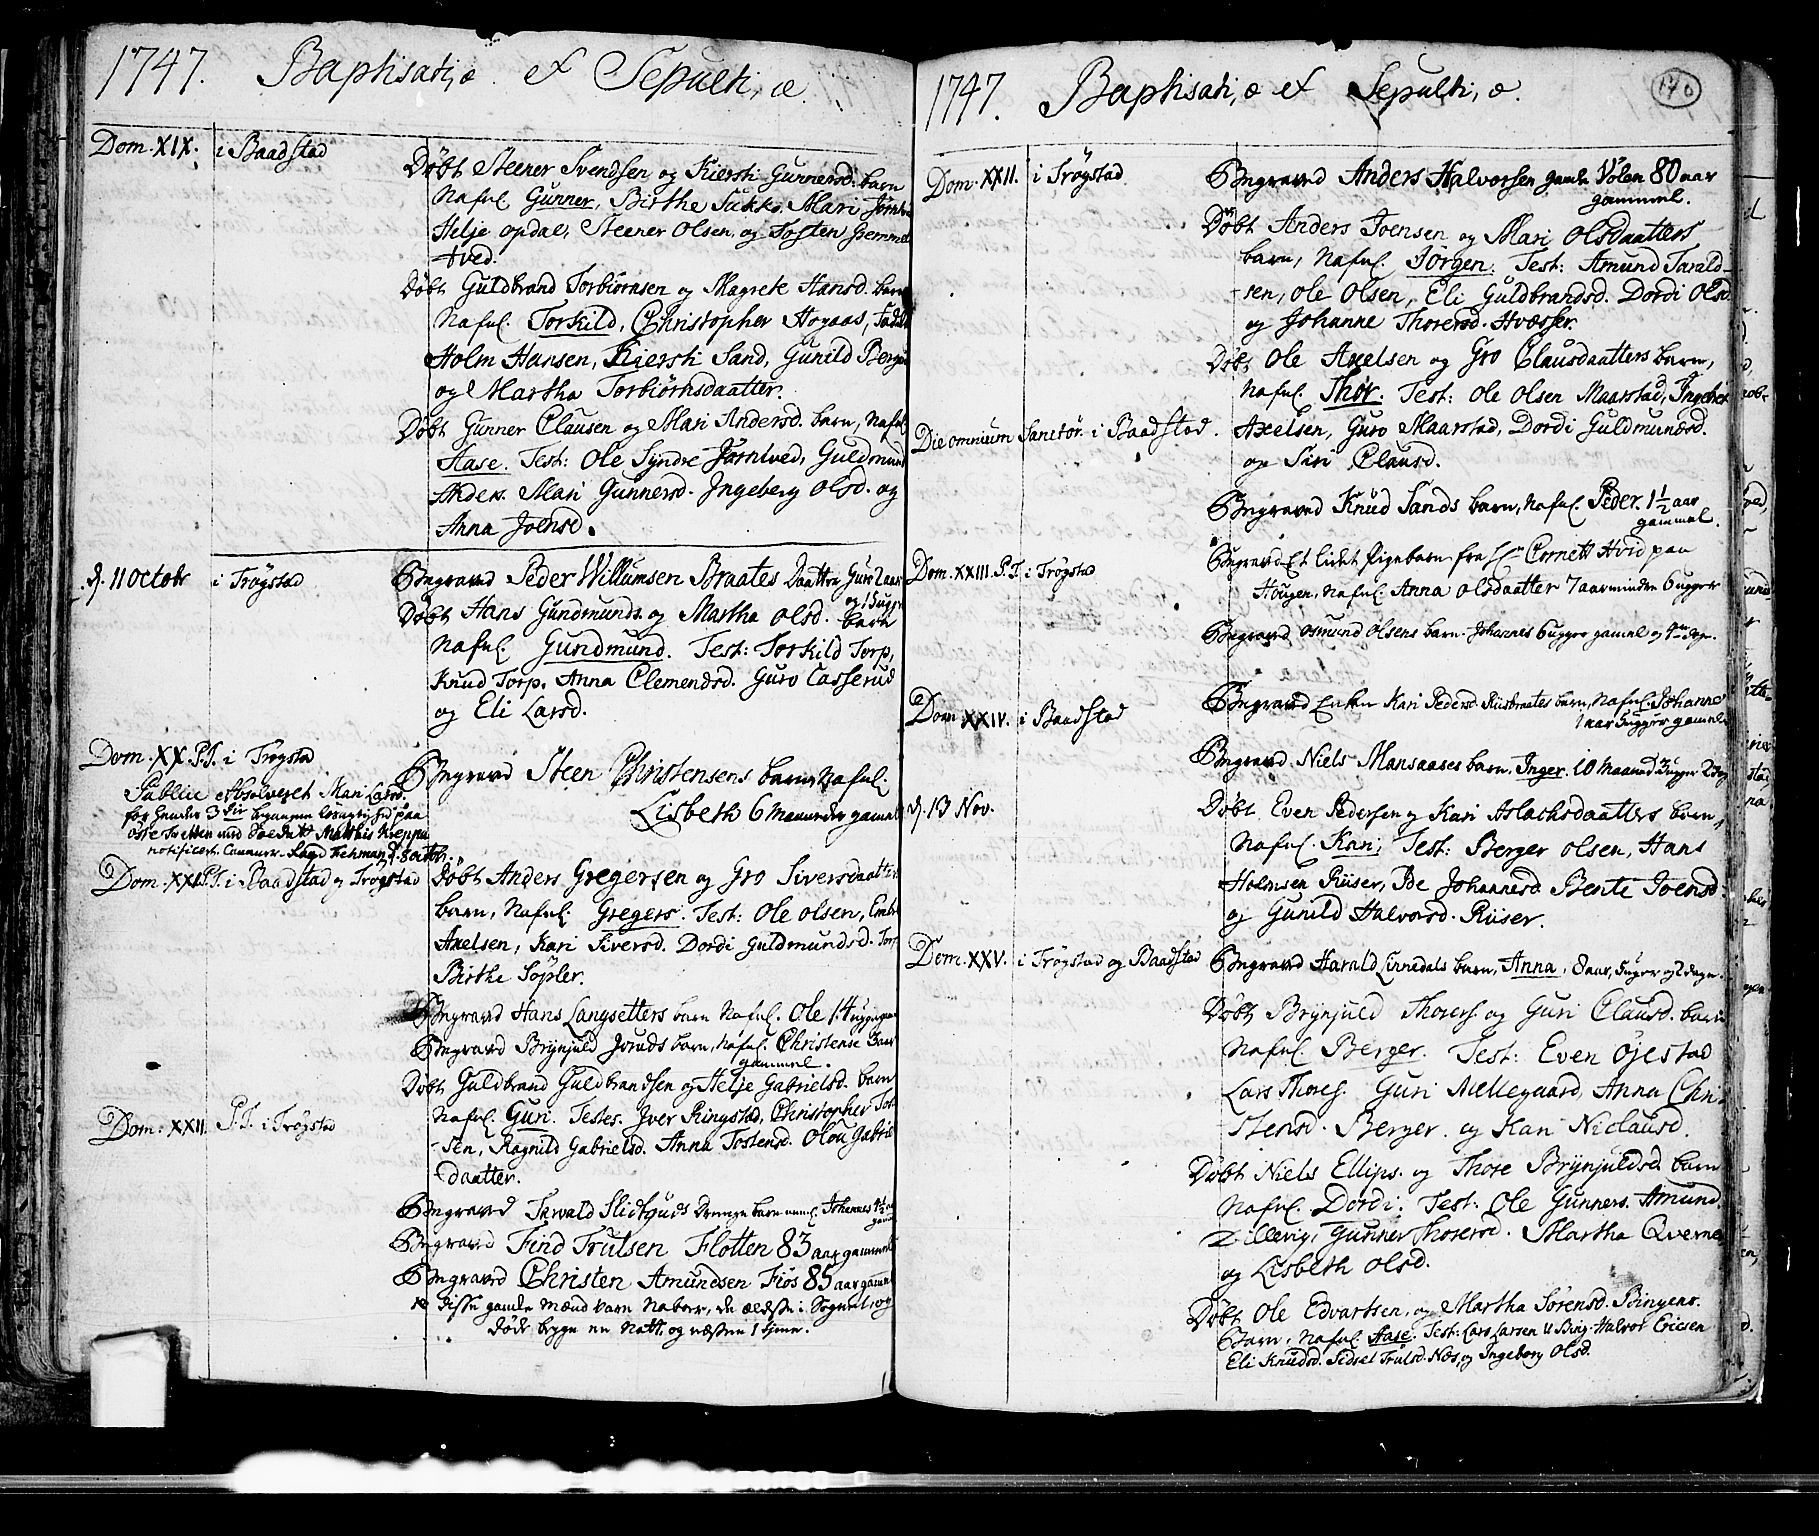 1747. Baptisati, æ et Sepulti, æ.
Dom. XIX. i Baadstad
Døbt Steener Svendsen og Kiersti Gunnersd. barn
Nafnl. Gunner, Birthe Mari
Helje opdal, Steener Olsen, og Tosten Gremmel
tved.
Døbt Guldbrand Torbiørnsen og Magrete Hansd. barn
Nafnl. Torkild, Christopher
Holm Hansen, Kiersti Sand, Gunild
og Martha Torbiørnsdaatter.
Døbt Gunner Clausen og Mari Andersd. barn, Nafnl.
Aase. Test: Ole Syndre Guldmund
Anders. Mari Gunnersd. Ingeberg Olsd. og
Anna Joensd.
d. 11 Octobr i Trøgstad
Begraved Peder Willumsen Braates Daatter Guro 2 aar
og ugger
Døbt Hans Gundmunds. og Martha Olsd. barn
Nafnl. Gundmund. Test: Torkild Torp,
Knud Torp, Anna Clemendsd. Guro Casserud
og Eli Larsd.
Dom. XX. P.T. i Trøgstad
Begraved Steen Christensens barn, Nafnl.
Lisbeth 6 Maaneder gamel
Publice Absolveret Mari Larsd.
for hendes 3die begangen paa
med Matthis
notificeret d. 8 octobr.
Dom. XXI P.T. i Baadstad og Trøgstad
Døbt Anders Gregersen og Gro Siversdaatters
barn, Nafnl. Gregers. Test: Ole Olsen, Embr
Axelsen, Kari Siversd. Dordi Guldmundsd. Torp
Birthe Søpler.
Begraved Hans Langsetters barn Nafnl. Ole 14 ugger gam
Begraved Brynjuld barn, Nafnl. Christense aar
gammel.
Døbt Guldbrand Guldbrandsen og Helje Gabrielsd. barn
Nafnl. Guri. Testes. Iver Ringstad, Christopher Tos-
sen, Ragnild Gabrielsd. Anna Tostensd. Olou Gabriels
daatter.
Dom. XXII P.T. i Trøgstad
Begraved Tarald Drenge barn navnl. Johannes 4½
Begraved Find Trulsen Flotten 83 aar gammel
Begraved Christen Amundsen Fiøs 85 aar gamel
Disse gamle Mænd vare Naboer, de ældste i Sognet, og
døde begge en Natt, og næsten 1 time.
1747. Baptisati, æ et Sepulti, æ.
170
Dom. XXII. i Trøgstad
Begraved Anders Halvorsen gamle Volen 80 aar
gammel.
Døbt Anders Joensen og Mari Olsdaatters
barn, Nafnl. Jörgen. Test: Amund Tarald-
sen, Ole Olsen, Eli Guldbrandsd. Dordi Olsd.
og Johanne Thorersd. Hvæsser.
Døbt Ole Axelsen og Gro Clausdaatters barn,
Nafnl. Thor. Test: Ole Olsen Maarstad, Ingebret
Die omnium Sanctor. i Baadstad.
Axelsen, Guro Maarstad, Dordi Guldmundsd.
og Siri Clausd.
Begraved Knud Sands barn, Nafnl. Peder. 1½ aar
gammel.
Dom. XXIII. P.T. i Trøgstad
Begraved Et lidet Pigebarn fra Hr Cornett Hvid paa
Hougen, Nafnl. Anna Olsdaatter 7 aar mindre 6 ugger
Begraved Osmund Olsens barn Johannes 6 ugger gamel og dag.
Dom. XXIV. i Baadstad
Begraved Enken Kari Pedersd. barn, Nafnl. Johanne
1 aar ugger gamel
Begraved Niels Mansaases barn, Inger. 10 Maaned 2 ugger 2 dag
d. 13 Nov.
Døbt Even Pedersen og Kari Aslachsdaatters barn,
Nafnl. Kari, Test: Berger Olsen, Hans
Holmsen Riiser, Ide Johannesd. Bente Joensd.
og Gunild Halvorsd. Riiser.
Dom. XXV. i Trøgstad og Baadstad
Begraved Harald Linnedals barn, Anna, 8 aar, ugger og 2 dage.
Døbt Brynjuld Thorers. og Guri Clausd. barn
Nafnl. Berger. Test: Even Øjestad
Lars Thores. Guri Mellegaard, Anna Chri-
stensd. Berger og Kari Niclausd.
Døbt Niels Ellips. og Thore Brynjuldsd. barn
Nafnl. Dordi. Test: Ole Gunners. Amund
Dillevig, Gunner Thorersd. Martha Qverne
og Lisbeth Olsd.
Døbt Ole Edvartsen, og Martha Sørensd. Bingens.
Barn, Nafnl. Aase. Test: Lars Larsen Bing. Halvor Ericsen
Eli Knudsd. Sidsel Trulsd. Næs, og Ingeborg Olsd.